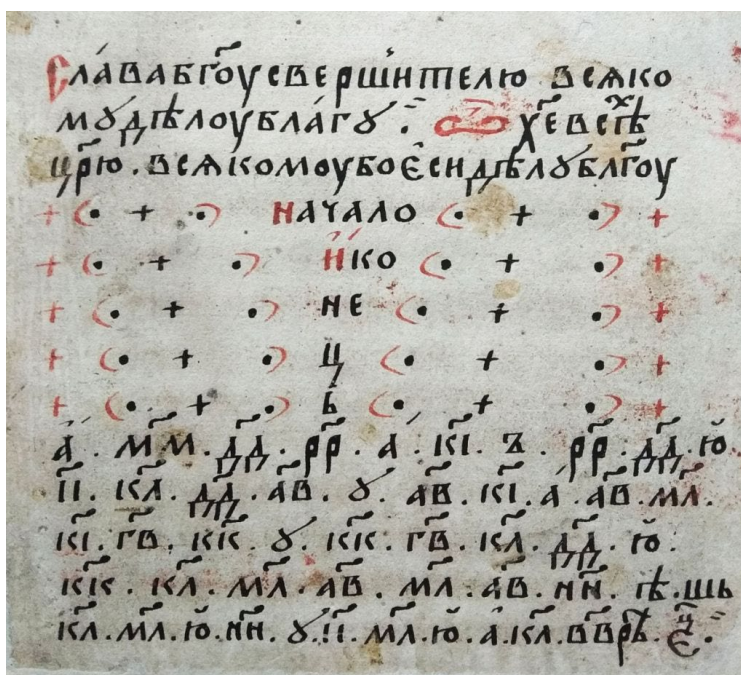 Сла́вабг҃оусверши́телю всѧко
мꙋдѣлоубла́гꙋ : х҃евсѣ
цр҃ю.всѧкомоубоє҆сидѣлꙋблг҃оу
+ (• + •) Начало (• + •) +
+ (• + •) И҆ко (• + •) +
+ (• + •) не (• + •) +
+ (• + •) ц (• + •) +
+ (• + •) ь (• + •) +
а҆ . мм҃ . дд҃ . рр҃ . а҆ . кі҃ . ъ . рр҃ . дд҃ . ю҆ .
іі҃ . кл҃ . дд҃ . ав҃ . ꙋ . ав҃ . кі҃ . а҆ . ав҃ . мл҃ .
кі҃ . гв҃ . кк҃ . ꙋ . кк҃ . гв҃ . кл҃ . дд҃ . ю҆ .
кк҃ . кл҃ . мл҃ . ав҃ . мл҃ . ав҃ . нн҃ . ѣ . шь
кл҃ . мл҃ . ю҆ . нн҃ . ꙋ . іі҃ . мл҃ . ю҆ . а҆ . кл҃ .